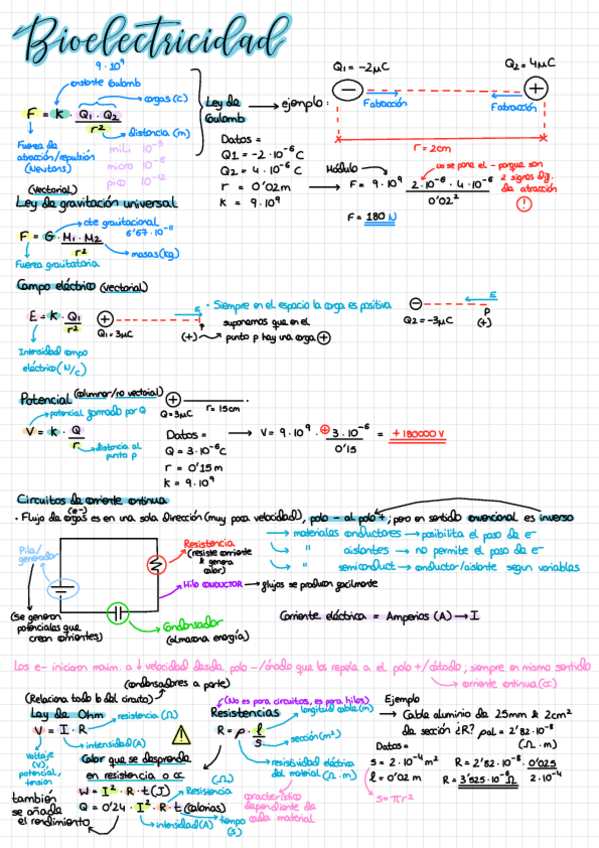 Bioelectricidad
9 · 10⁹
constante Coulomb
cargas (C)
F = K · Q₁ · Q₂ / r²
distancia (m)
Fuerza de atracción/repulsión (Newtons)
mili 10⁻³
micro 10⁻⁶
pico 10⁻¹²
(vectorial)
Ley de Coulomb → ejemplo:
Q₁ = -2μC
Q₂ = 4μC
Fatracción
Fatracción
r = 2cm
Datos =
Q1 = -2 · 10⁻⁶ C
Q2 = 4 · 10⁻⁶ C
r = 0'02m
K = 9 · 10⁹
Módulo
no se pone el - porque son 2 signos dif. da atracción
F = 9 · 10⁹ · 2 · 10⁻⁶ · 4 · 10⁻⁶ / 0'02²
F = 180 N
Ley de gravitación universal
cte gravitacional
6'67 · 10⁻¹¹
F = G · M₁ · M₂ / r²
masas (kg)
Fuerza gravitatoria
Campo eléctrico (vectorial)
E = K · Q₁ / r²
Q₁ = 3μC
E
P
(+)
· Siempre en el espacio la carga es positiva
suponemos que en el punto p hay una carga +
Q2 = -3μC
E
P
(+)
Intensidad campo eléctrico (N/C)
Potencial (columna/no vectorial)
potencial formado por Q
V = K · Q / r
distancia al punto p
Q = 3μC
r = 15cm
Datos =
Q = 3 · 10⁻⁶ C
r = 0'15m
K = 9 · 10⁹
V = 9 · 10⁹ · + 3 · 10⁻⁶ / 0'15 = +180000 V
Circuitos de corriente continua
(e-)
· Flujo de cargas es en una sola dirección (muy poca velocidad), polo - al polo +; pero en sentido convencional es inverso
→ materiales conductores → posibilita el paso de e-
→ " aislantes → no permite el paso de e-
→ " semiconduct → conductor/aislante según variables
Pila/generador
Resistencia (resiste corriente & genera calor)
Hilo CONDUCTOR → flujos se producen fácilmente
(se generan potenciales que crean corrientes)
Condensador (almacena energía)
Corriente eléctrica = Amperios (A) → I
Los e- iniciaron maxim. a ↓ velocidad desde polo -/ánodo que los repela a el polo +/cátodo; siempre en mismo sentido
corriente continua (cc)
(condensadores a parte)
(Relaciona todo lo del circuito)
Ley de Ohm
resistencia (Ω)
V = I · R
intensidad (A)
voltaje (V), potencial, tensión
Calor que se desprende en resistencia o cc
W = I² · R · t (J)
(Ω)
Resistencia
Q = 0'24 · I² · R · t (calorías)
intensidad (A)
tiempo (s)
también se añade el rendimiento
(No es para circuitos, es para hilos)
Resistencias
longitud cable (m)
R = ρ · l / S
sección (m²)
resistividad eléctrica del material (Ω · m)
característico dependiente de cada material
Ejemplo
→ Cable aluminio de 25mm & 2cm² de sección ¿R? ρal = 2'82 · 10⁻⁸ (Ω · m)
Datos =
S = 2 · 10⁻⁴ m²
l = 0'02 m
R = 2'82 · 10⁻⁸ · 0'025 / 2 · 10⁻⁴
R = 3'525 · 10⁻⁶ Ω
S = πr²